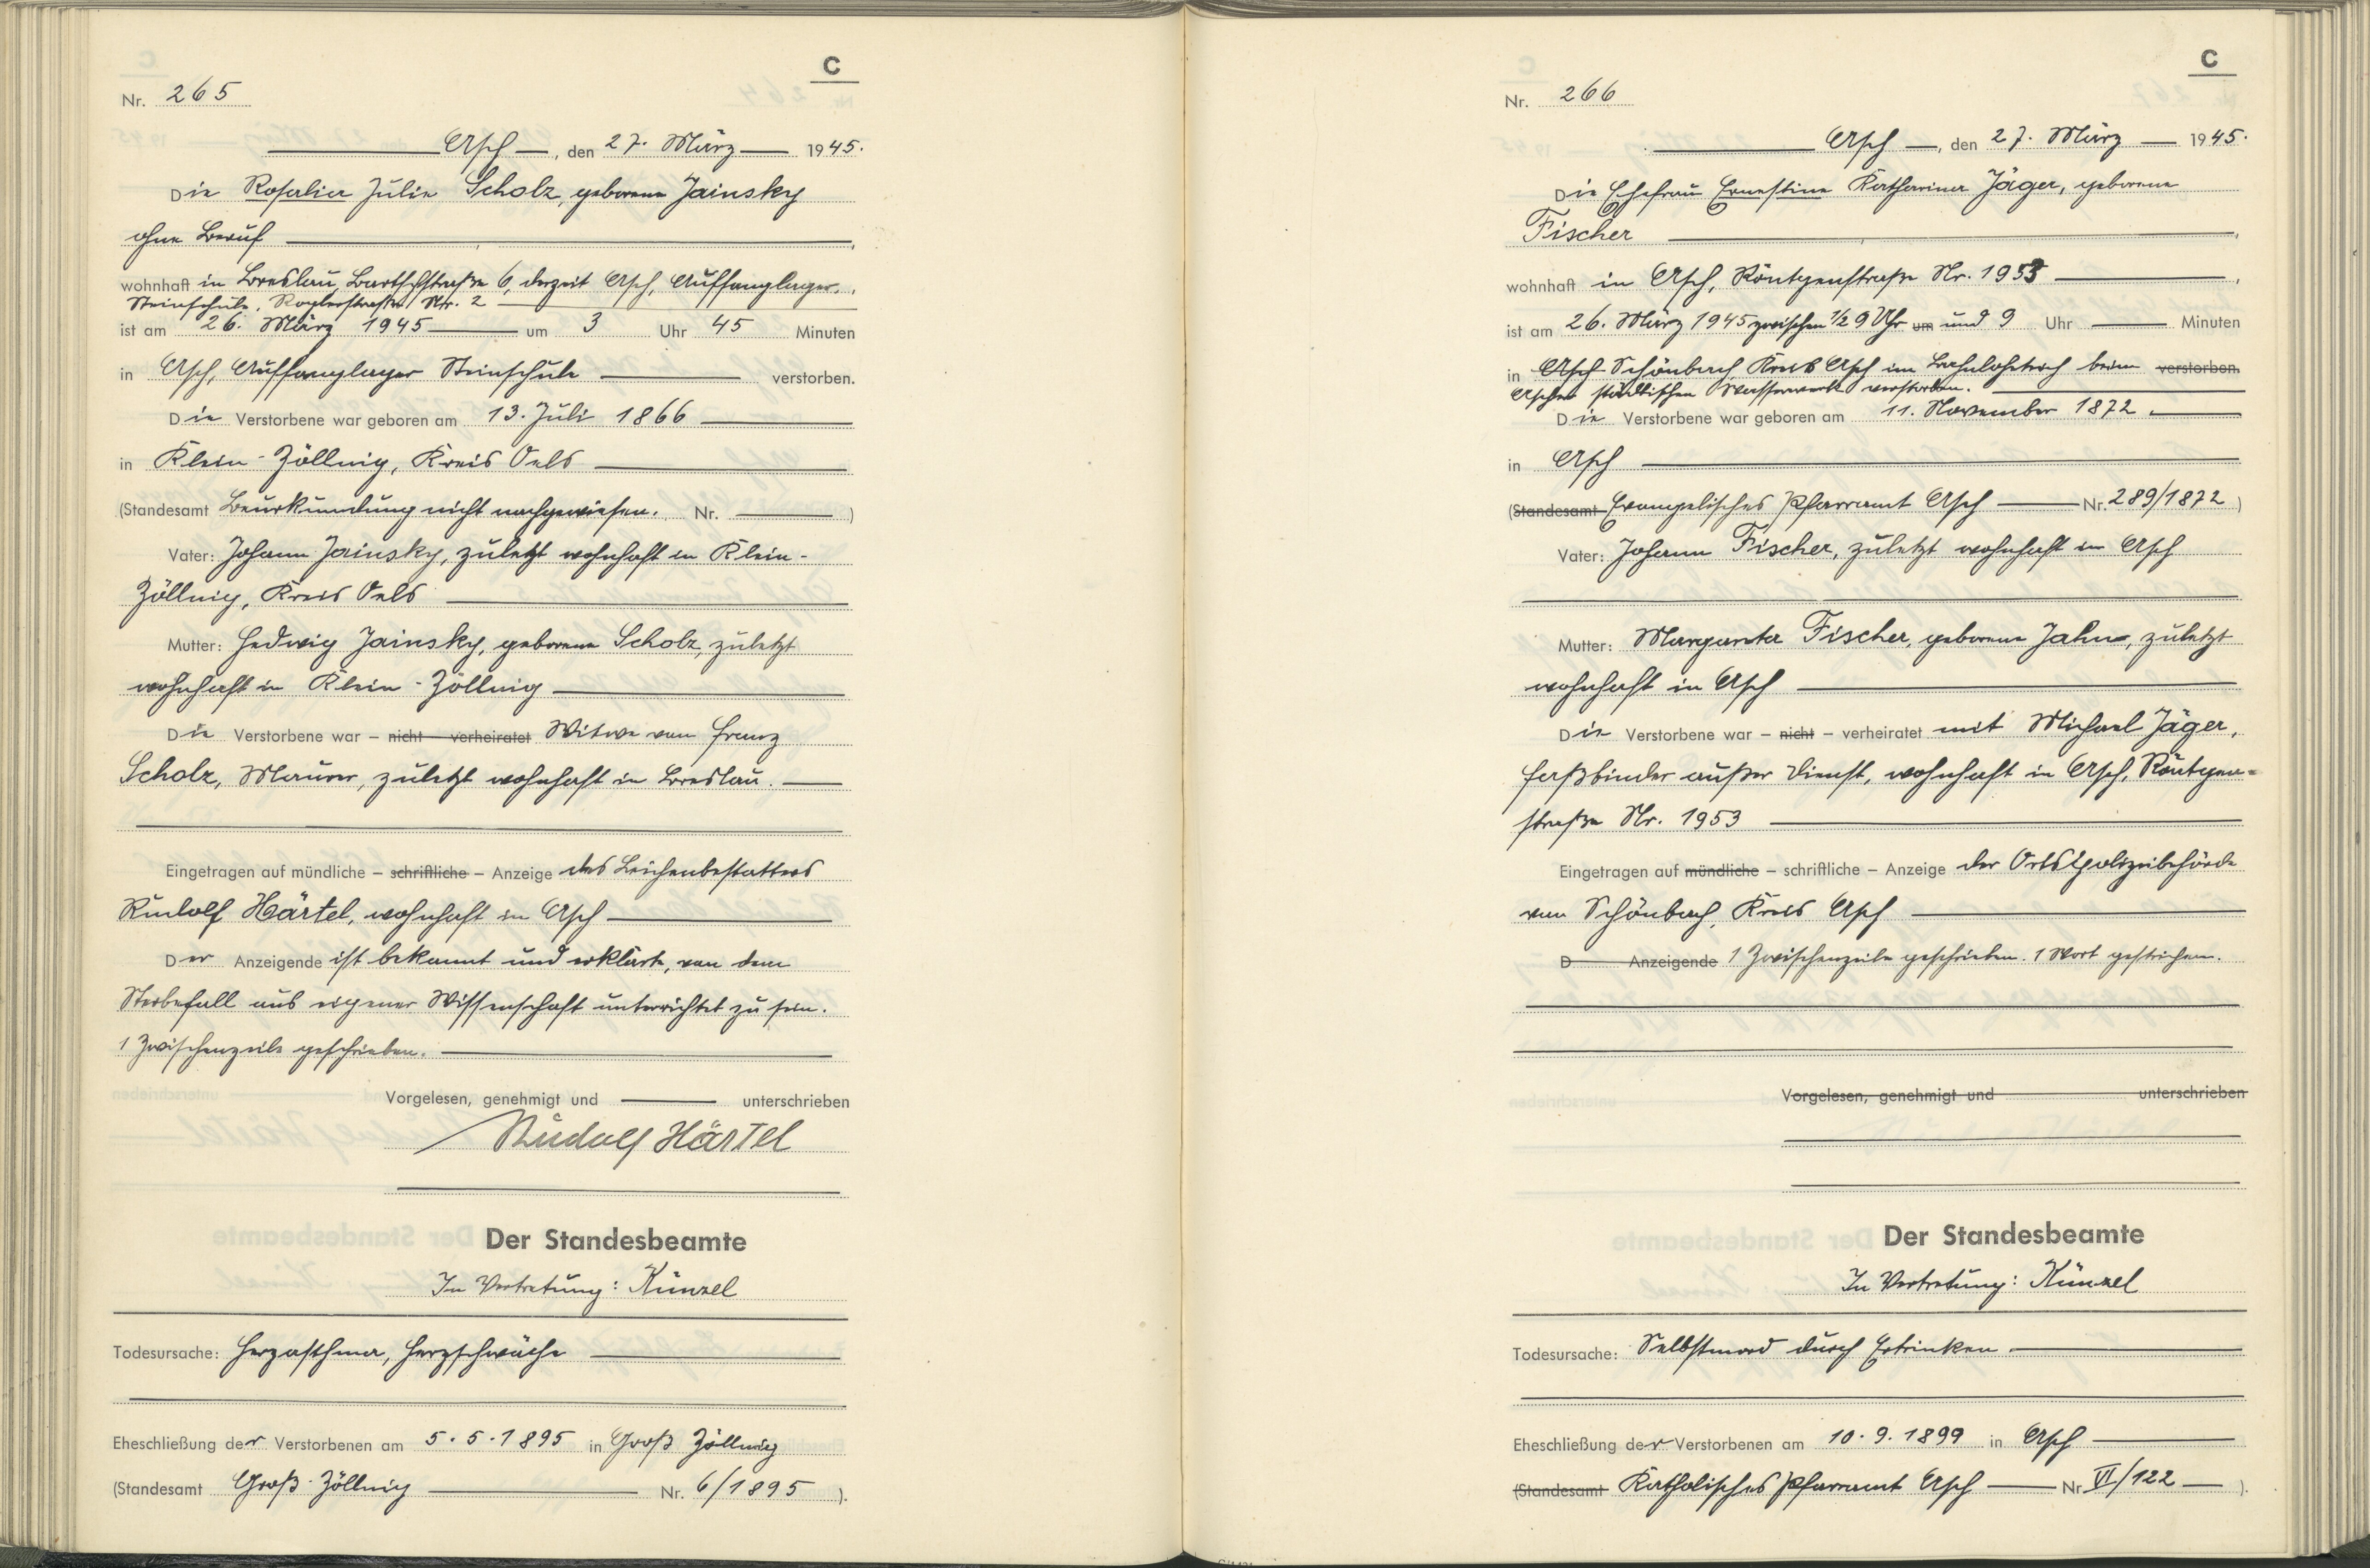 C
Nr. 265
Asch, den 27. März 1945.
Die Rosalia Julie Scholz, geborene Jainsky
ohne Beruf,
wohnhaft in Breslau, Bartschstraße 6, derzeit Asch, Auffanglager,
Steinschule, Roglerstraße Nr. 2
ist am 26. März 1945 um 3 Uhr 45 Minuten
in Asch, Auffanglager Steinschule verstorben.
Die Verstorbene war geboren am 13. Juli 1866
in Klein-Zöllnig, Kreis Oels
(Standesamt Beurkundung nicht nachgewiesen. Nr. )
Vater: Johann Jainsky, zuletzt wohnhaft in Klein-
Zöllnig, Kreis Oels
Mutter: Hedwig Jainsky, geborene Scholz, zuletzt
wohnhaft in Klein-Zöllnig
Die Verstorbene war – nicht verheiratet Witwe von Franz
Scholz, Maurer, zuletzt wohnhaft in Breslau.
Eingetragen auf mündliche – schriftliche – Anzeige des Leichenbestatters
Rudolf Härtel, wohnhaft in Asch
Der Anzeigende ist bekannt und erklärte, von dem
Sterbefall aus eigener Wissenschaft unterrichtet zu sein.
1 Zwischenzeile geschrieben.
Vorgelesen, genehmigt und unterschrieben
Rudolf Härtel
Der Standesbeamte
In Vertretung: Künzel
Todesursache: Herzasthma, Herzschwäche
Eheschließung der Verstorbenen am 5.5.1895 in Groß Zöllnig
(Standesamt Groß-Zöllnig Nr. 6/1895 ).
C
Nr. 266
Asch, den 27. März 1945.
Die Ehefrau Ernestine Katharina Jäger, geborene
Fischer,
wohnhaft in Asch, Röntgenstraße Nr. 1953,
ist am 26. März 1945 zwischen 1/2 9 Uhr um und 9 Uhr Minuten
in Asch-Schönbach, Kreis Asch im beim verstorben.
Ascher städtischen Wasserwerk verstorben.
Die Verstorbene war geboren am 11. November 1872.
in Asch
(Standesamt Evangelisches Pfarramt Asch Nr. 289/1872 )
Vater: Johann Fischer, zuletzt wohnhaft in Asch
Mutter: Margareta Fischer, geborene Jahn, zuletzt
wohnhaft in Asch
Die Verstorbene war – nicht – verheiratet mit Michael Jäger,
Faßbinder außer Dienst, wohnhaft in Asch, Röntgen-
straße Nr. 1953
Eingetragen auf mündliche – schriftliche – Anzeige der Ortspolizeibehörde
von Schönbach, Kreis Asch
D Anzeigende 1 Zwischenzeile geschrieben. 1 Wort gestrichen.
Vorgelesen, genehmigt und unterschrieben
Der Standesbeamte
In Vertretung: Künzel
Todesursache: Selbstmord durch Ertrinken.
Eheschließung der Verstorbenen am 10.9.1899 in Asch
(Standesamt Katholisches Pfarramt Asch Nr. VI/122 ).